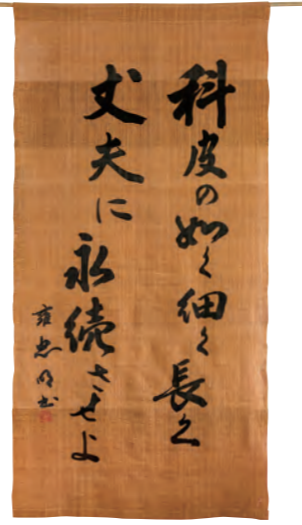 科皮の如く細く長く
丈夫に永続させよ